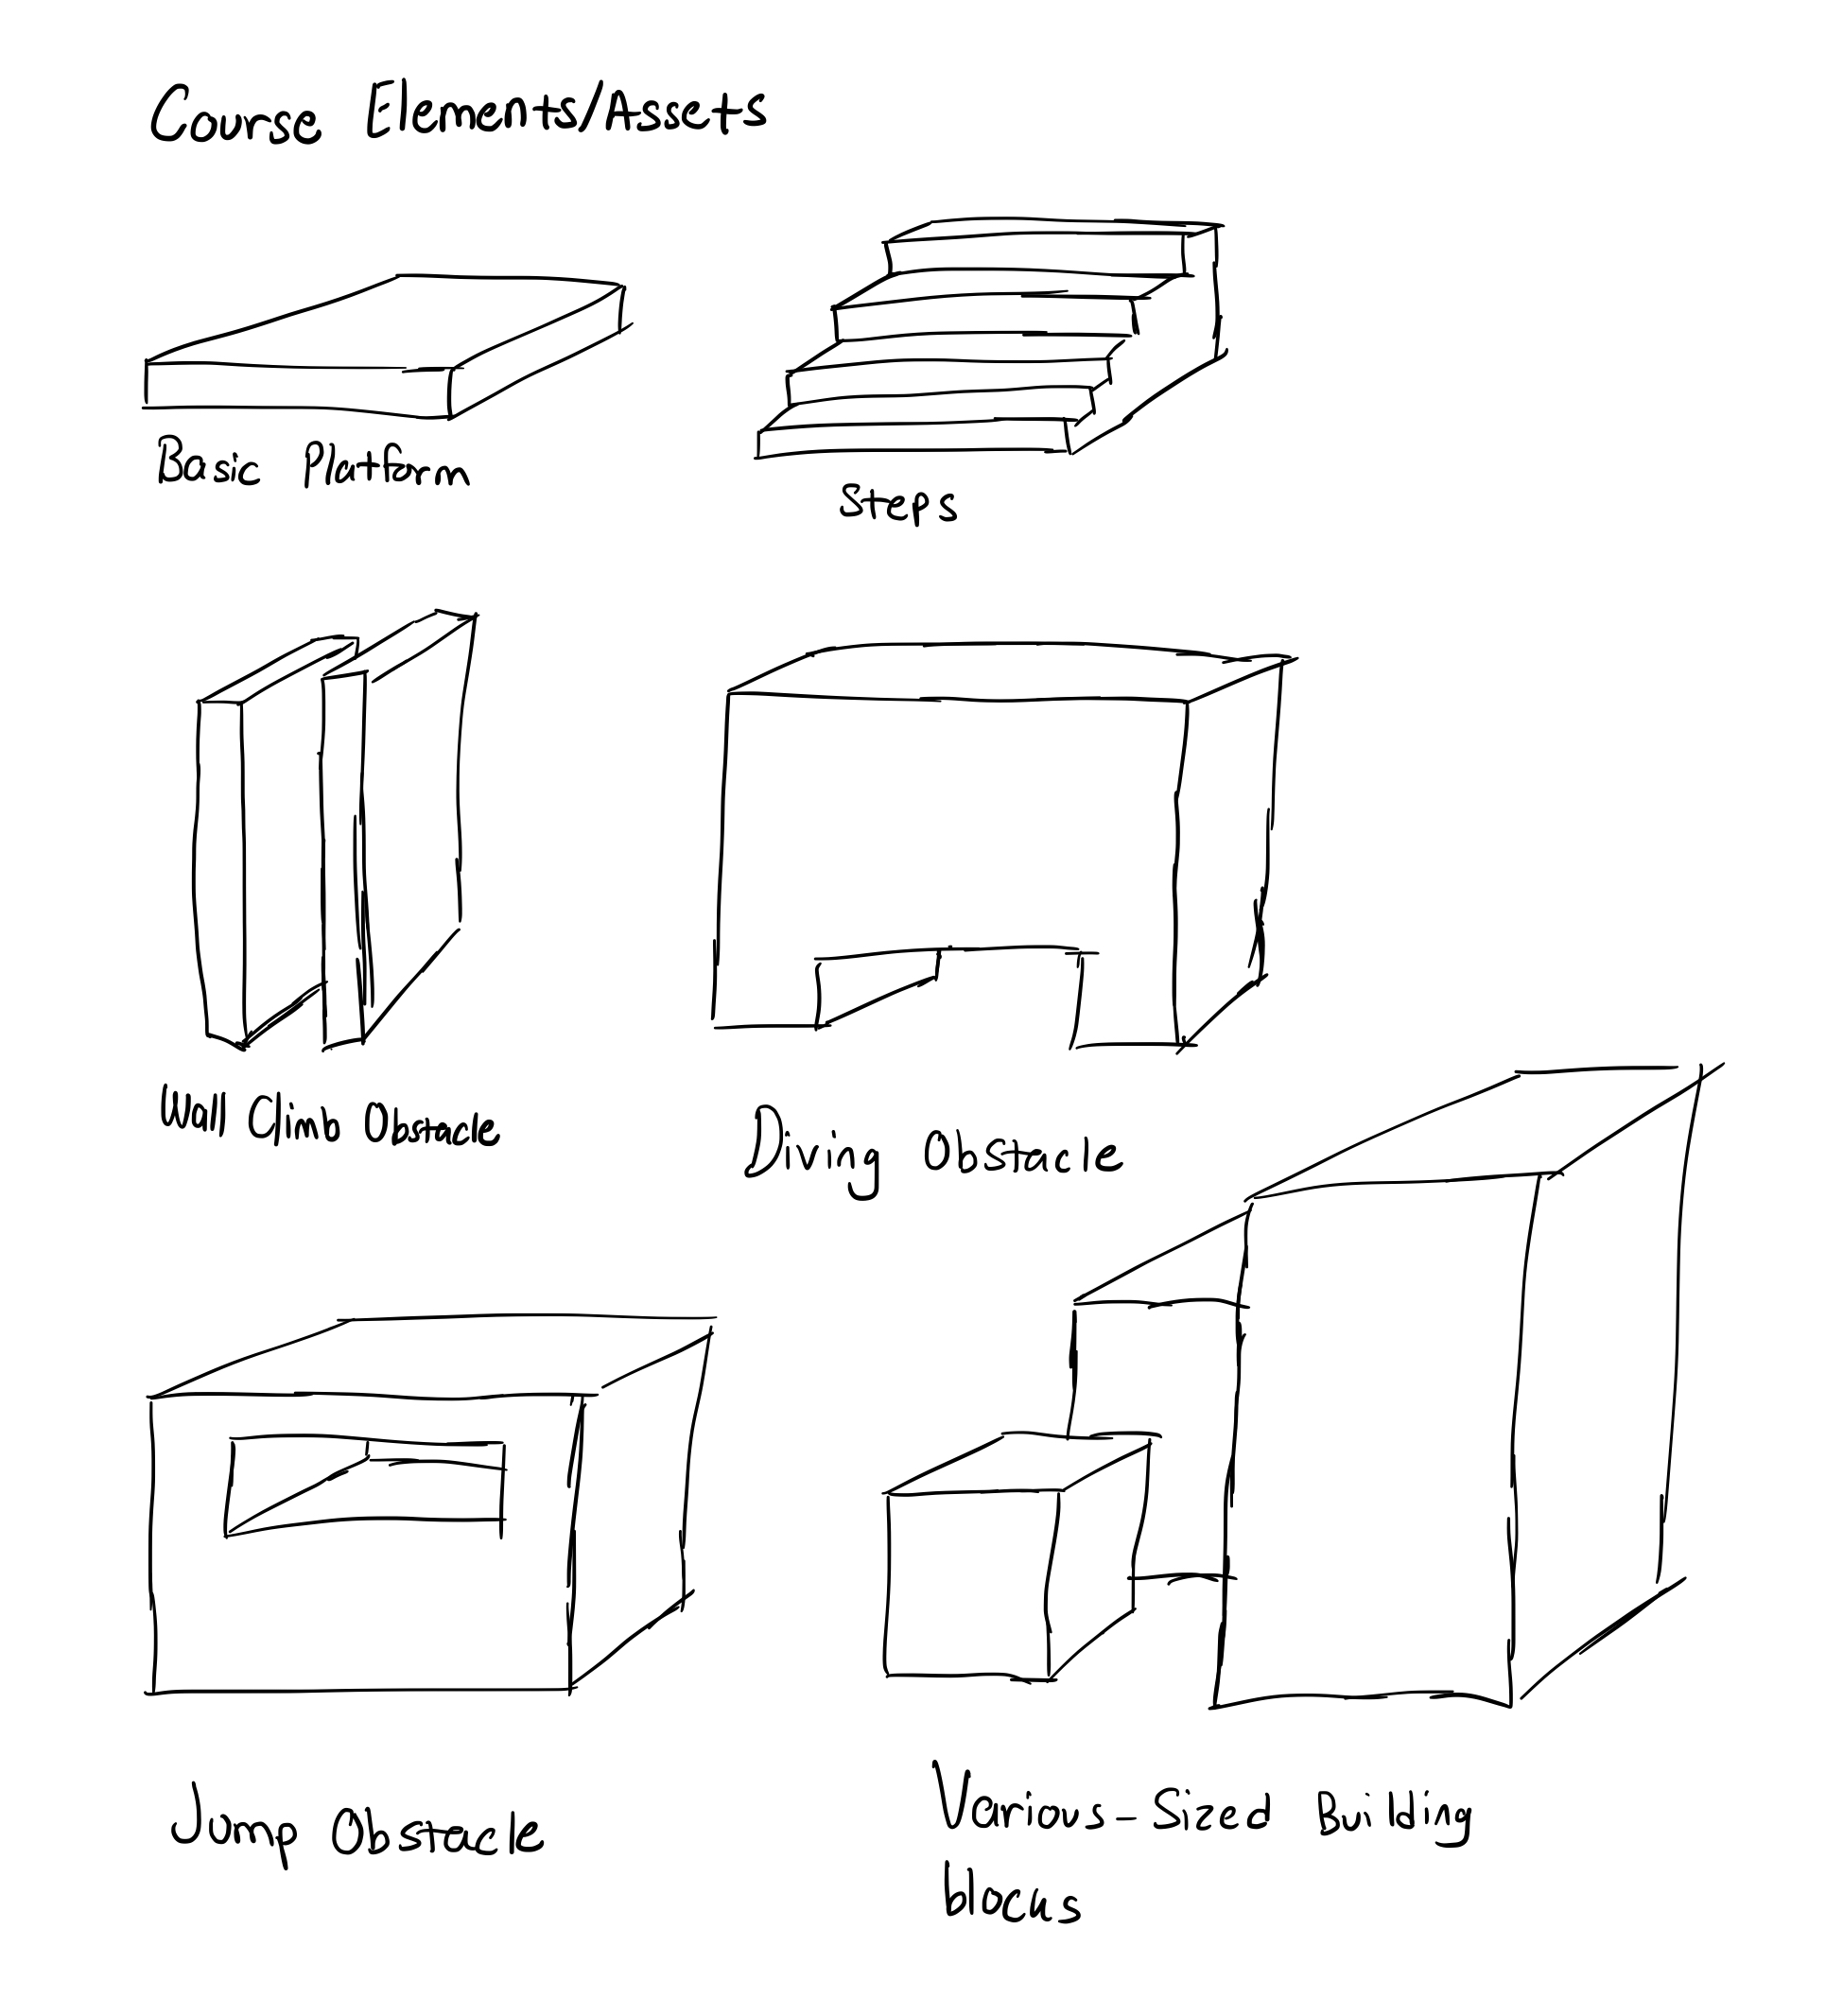 Course Elements/Assets
Basic Platform
Steps
Wall Climb Obstacle
Diving Obstacle
Jump Obstacle
Various-Sized Building
blocks